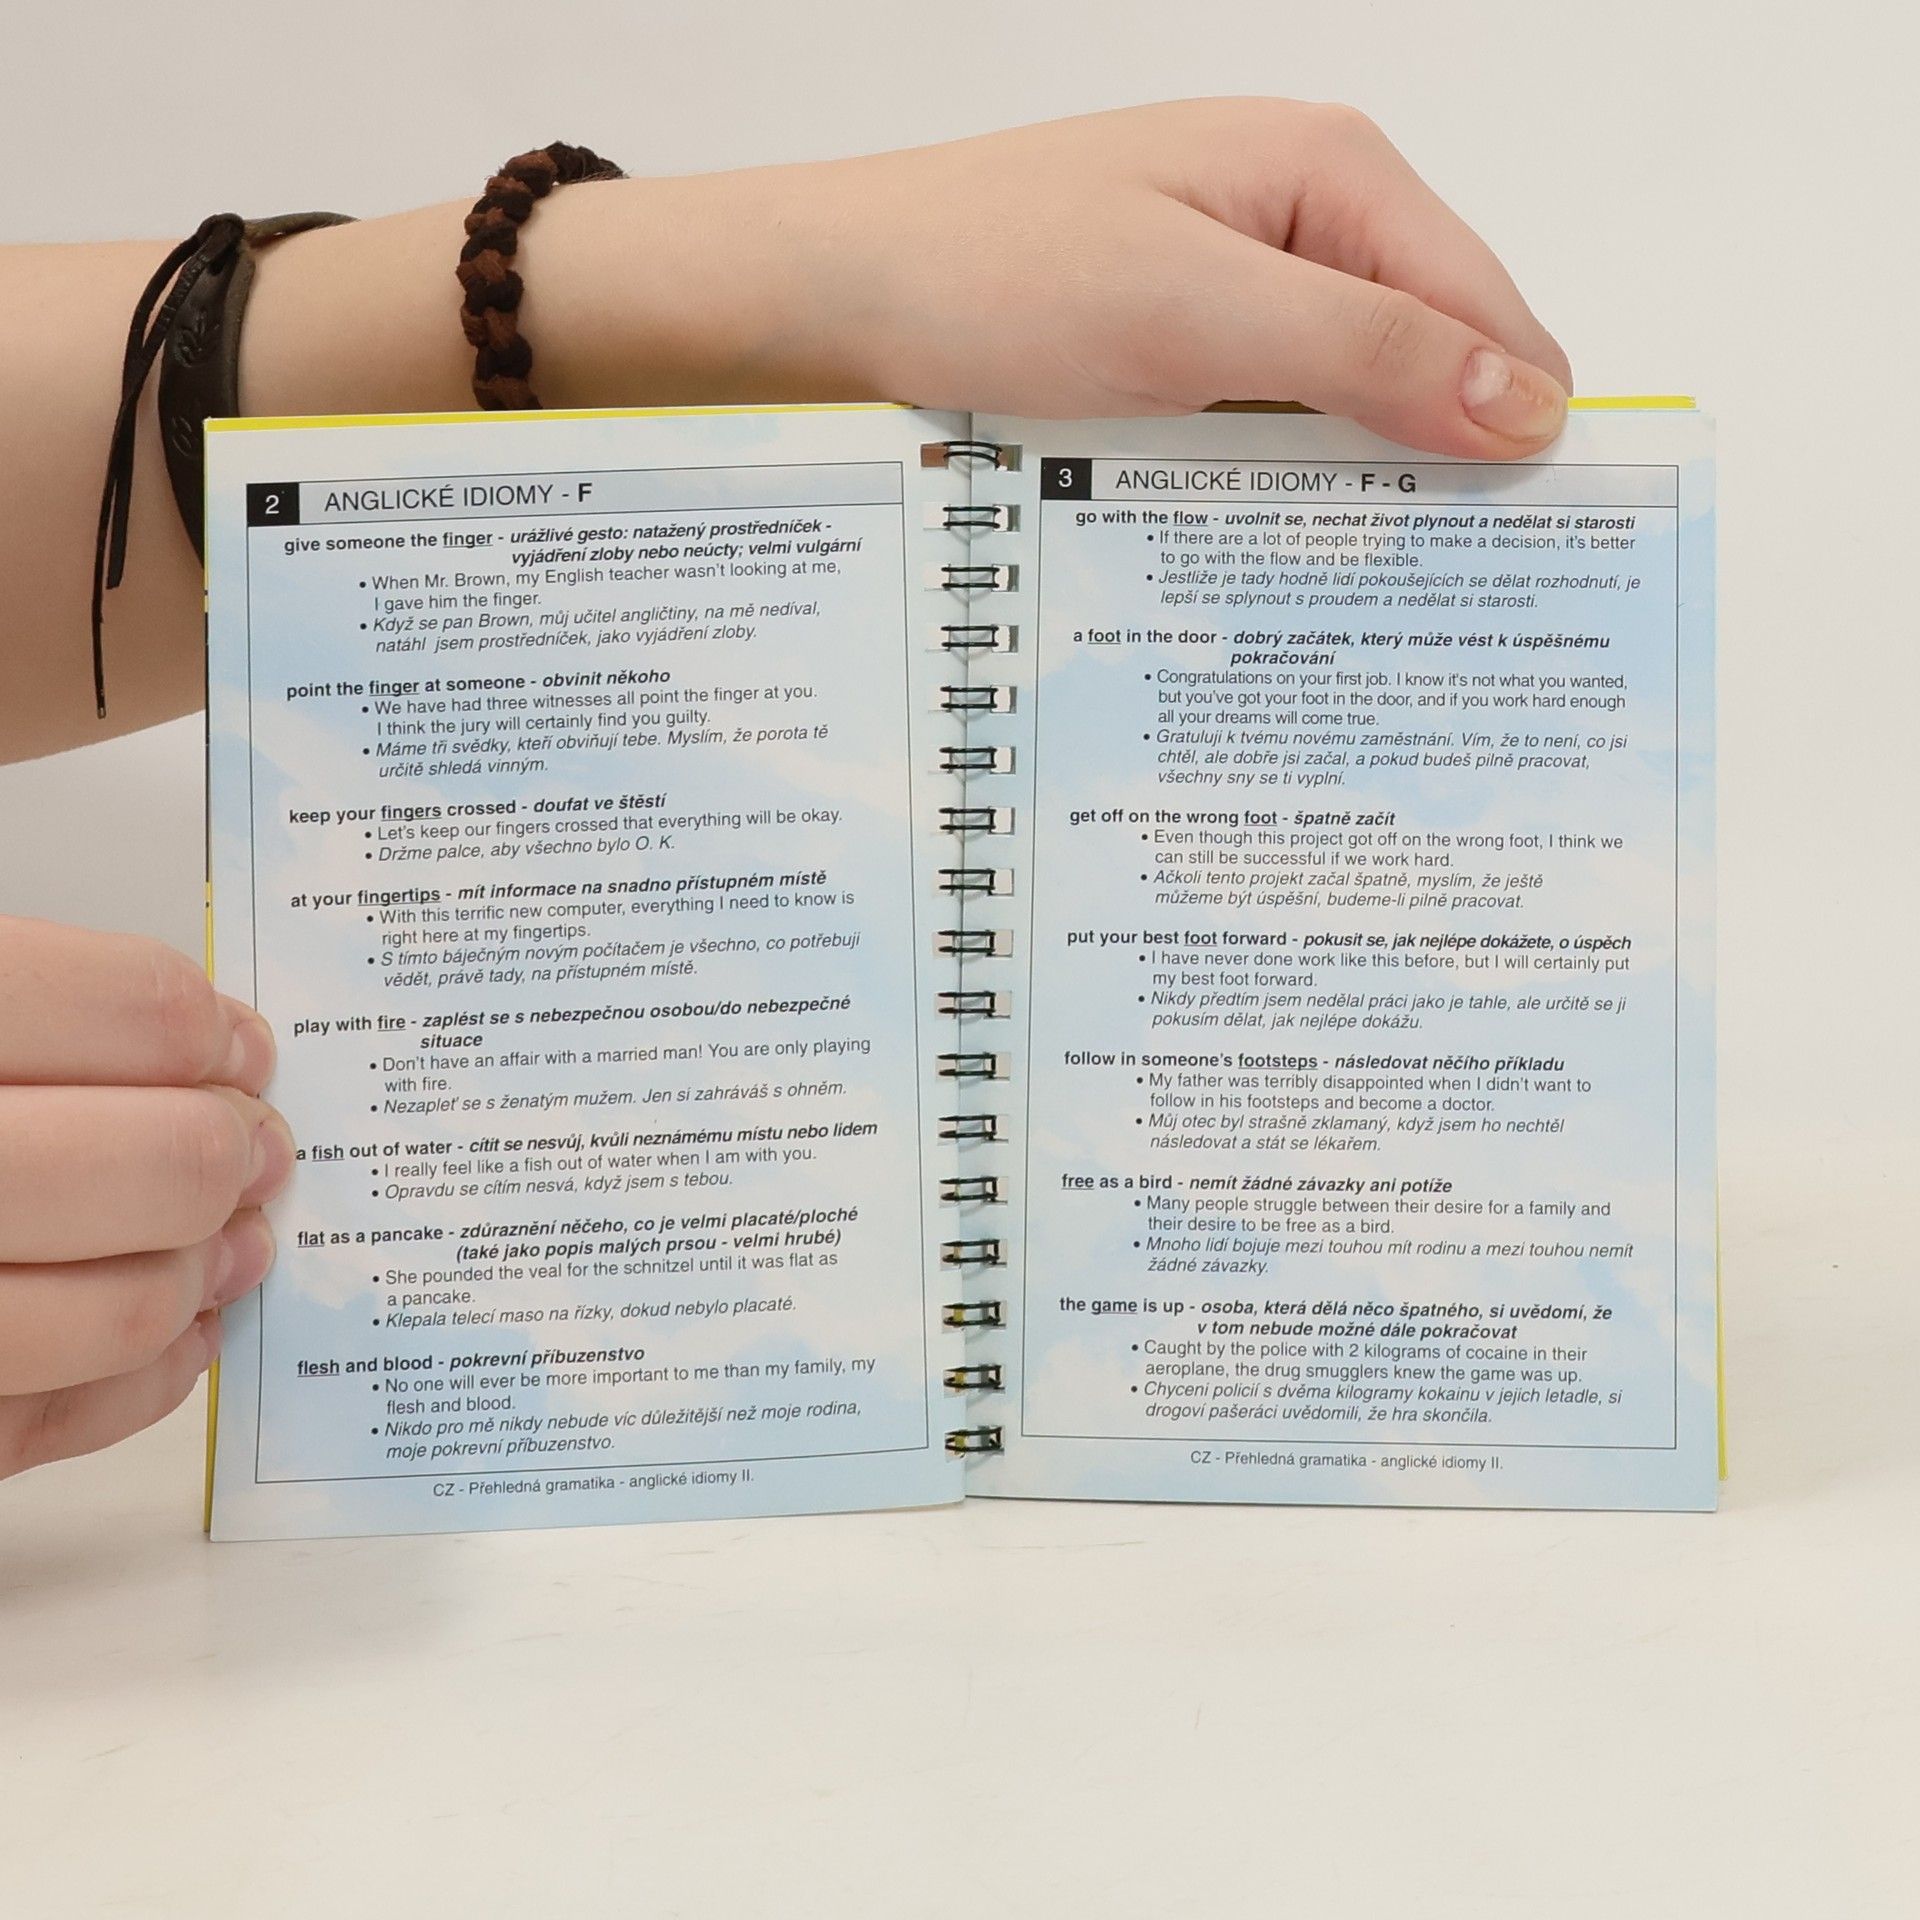 2 ANGLICKÉ IDIOMY - F
give someone the finger - urážlivé gesto: natažený prostředníček -
vyjádření zloby nebo neúcty; velmi vulgární
• When Mr. Brown, my English teacher wasn't looking at me,
I gave him the finger.
• Když se pan Brown, můj učitel angličtiny, na mě nedíval,
natáhl jsem prostředníček, jako vyjádření zloby.
point the finger at someone - obvinit někoho
• We have had three witnesses all point the finger at you.
I think the jury will certainly find you guilty.
• Máme tři svědky, kteří obviňují tebe. Myslím, že porota tě
určitě shledá vinným.
keep your fingers crossed - doufat ve štěstí
• Let's keep our fingers crossed that everything will be okay.
• Držme palce, aby všechno bylo O. K.
at your fingertips - mít informace na snadno přístupném místě
• With this terrific new computer, everything I need to know is
right here at my fingertips.
• S tímto báječným novým počítačem je všechno, co potřebuji
vědět, právě tady, na přístupném místě.
play with fire - zaplést se s nebezpečnou osobou/do nebezpečné
situace
• Don't have an affair with a married man! You are only playing
with fire.
• Nezapleť se s ženatým mužem. Jen si zahráváš s ohněm.
a fish out of water - cítit se nesvůj, kvůli neznámému místu nebo lidem
• I really feel like a fish out of water when I am with you.
• Opravdu se cítím nesvá, když jsem s tebou.
flat as a pancake - zdůraznění něčeho, co je velmi placaté/ploché
(také jako popis malých prsou - velmi hrubé)
• She pounded the veal for the schnitzel until it was flat as
a pancake.
• Klepala telecí maso na řízky, dokud nebylo placaté.
flesh and blood - pokrevní příbuzenstvo
• No one will ever be more important to me than my family, my
flesh and blood.
• Nikdo pro mě nikdy nebude víc důležitější než moje rodina,
moje pokrevní příbuzenstvo.
CZ - Přehledná gramatika - anglické idiomy II.
3 ANGLICKÉ IDIOMY - F - G
go with the flow - uvolnit se, nechat život plynout a nedělat si starosti
• If there are a lot of people trying to make a decision, it's better
to go with the flow and be flexible.
• Jestliže je tady hodně lidí pokoušejících se dělat rozhodnutí, je
lepší se splynout s proudem a nedělat si starosti.
a foot in the door - dobrý začátek, který může vést k úspěšnému
pokračování
• Congratulations on your first job. I know it's not what you wanted,
but you've got your foot in the door, and if you work hard enough
all your dreams will come true.
• Gratuluji k tvému novému zaměstnání. Vím, že to není, co jsi
chtěl, ale dobře jsi začal, a pokud budeš pilně pracovat,
všechny sny se ti vyplní.
get off on the wrong foot - špatně začít
• Even though this project got off on the wrong foot, I think we
can still be successful if we work hard.
• Ačkoli tento projekt začal špatně, myslím, že ještě
můžeme být úspěšní, budeme-li pilně pracovat.
put your best foot forward - pokusit se, jak nejlépe dokážete, o úspěch
• I have never done work like this before, but I will certainly put
my best foot forward.
• Nikdy předtím jsem nedělal práci jako je tahle, ale určitě se ji
pokusím dělat, jak nejlépe dokážu.
follow in someone's footsteps - následovat něčího příkladu
• My father was terribly disappointed when I didn't want to
follow in his footsteps and become a doctor.
• Můj otec byl strašně zklamaný, když jsem ho nechtěl
následovat a stát se lékařem.
free as a bird - nemít žádné závazky ani potíže
• Many people struggle between their desire for a family and
their desire to be free as a bird.
• Mnoho lidí bojuje mezi touhou mít rodinu a mezi touhou nemít
žádné závazky.
the game is up - osoba, která dělá něco špatného, si uvědomí, že
v tom nebude možné dále pokračovat
• Caught by the police with 2 kilograms of cocaine in their
aeroplane, the drug smugglers knew the game was up.
• Chyceni policií s dvěma kilogramy kokainu v jejich letadle, si
drogoví pašeráci uvědomili, že hra skončila.
CZ - Přehledná gramatika - anglické idiomy II.